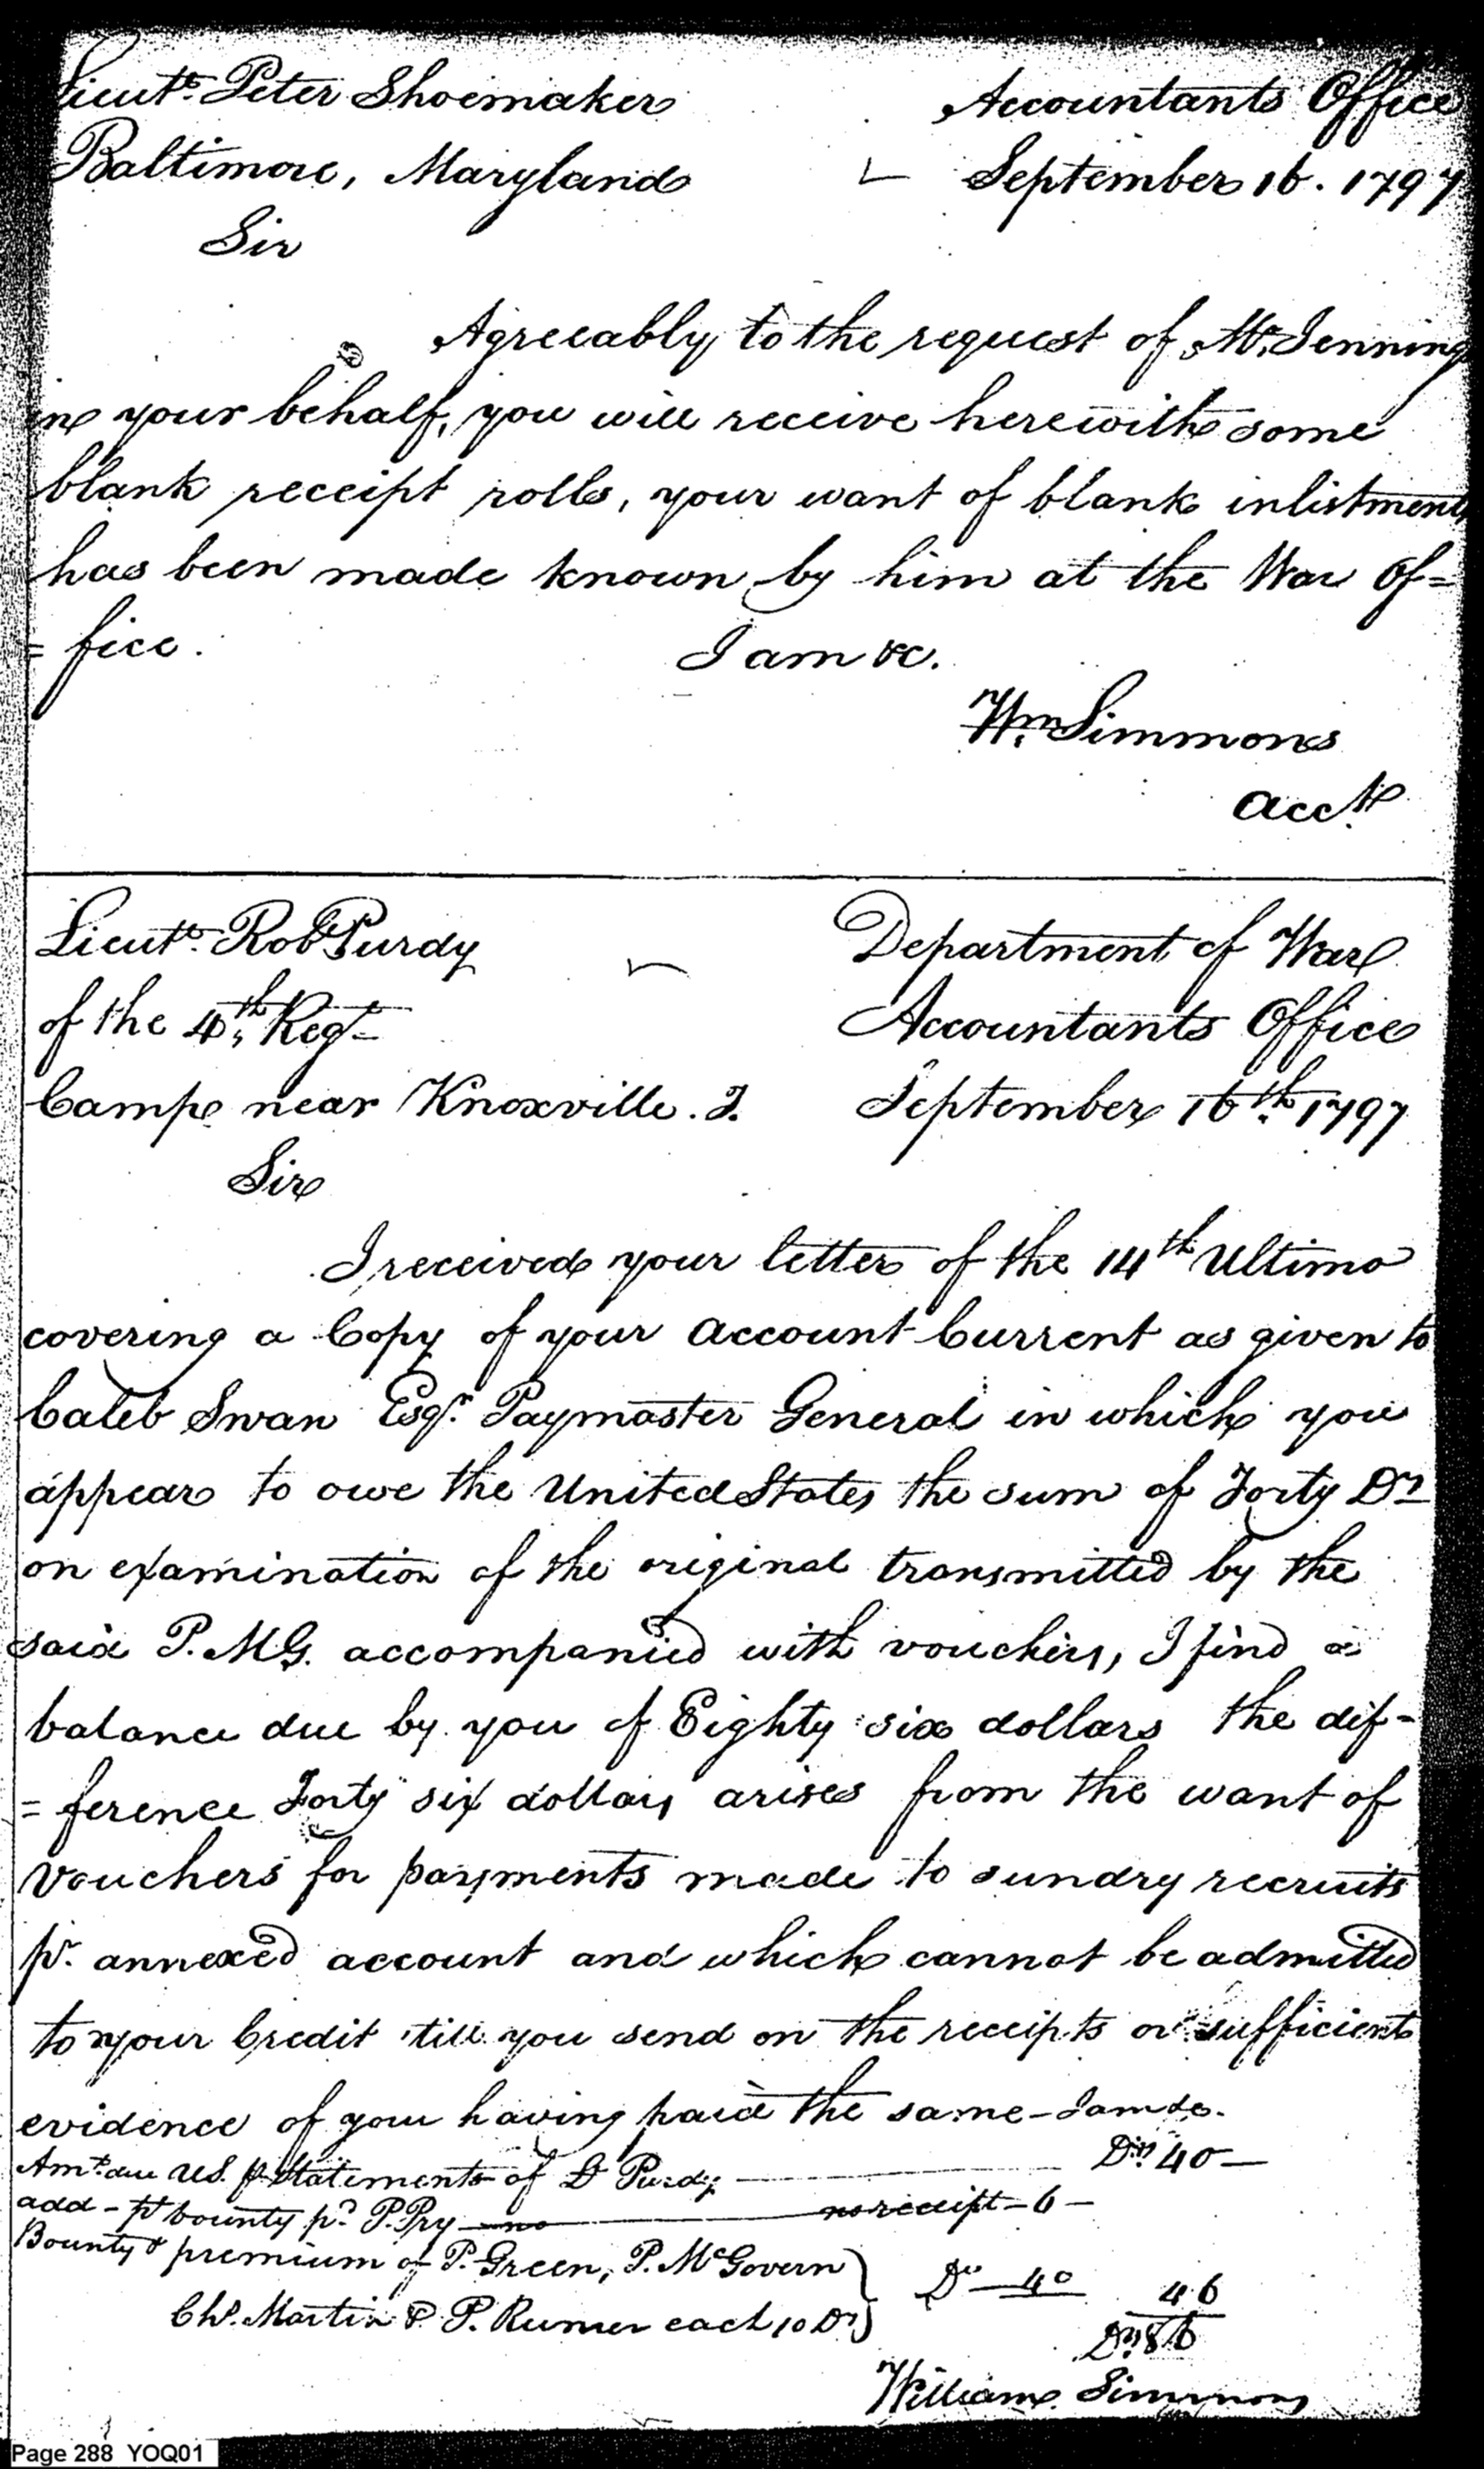 Lieutt. Peter Shoemaker
Accountants Office
Baltimore, Maryland
September 16. 1797
Sir
Agreeably to the request of Mr. Jennings
in your behalf, you will receive herewith some
blank receipt rolls, your want of blank inlistments
has been made known by him at the War Of=
=fice.
I am &c.
Wm. Simmons
Acctt.
Lieutt. Robt Purdy
Department of War
of the 4th. Regt.
Accountants Office
Camp near Knoxville. T.
September 16th. 1797
Sir
I received your letter of the 14th Ultimo
covering a Copy of your Account Current as given to
Caleb Swan Esqr. Paymaster General in which you
appear to owe the United States the sum of Forty Drs
on examination of the original transmitted by the
said P.M.G. accompanied with vouchers, I find a
balance due by you of Eighty six dollars the dif=
=ference Forty six dollars arises from the want of
vouchers for payments made to sundry recruits
pr. annexed account and which cannot be admitted
to your Credit 'till you send on the receipts or sufficient
evidence of your having paid the same - I am &c.
Amt. due U.S. pr Statements of Lt Purdy
Drs. 40 —
add - pt bounty pd. P. Pry — no — no receipt - 6 -
Bounty & premium of P. Green, P. McGovern
Chs. Martin & P. Rumer each 10 Drs
Do — 40
46
Drs. 86
William Simmons
Page 288 YOQ01